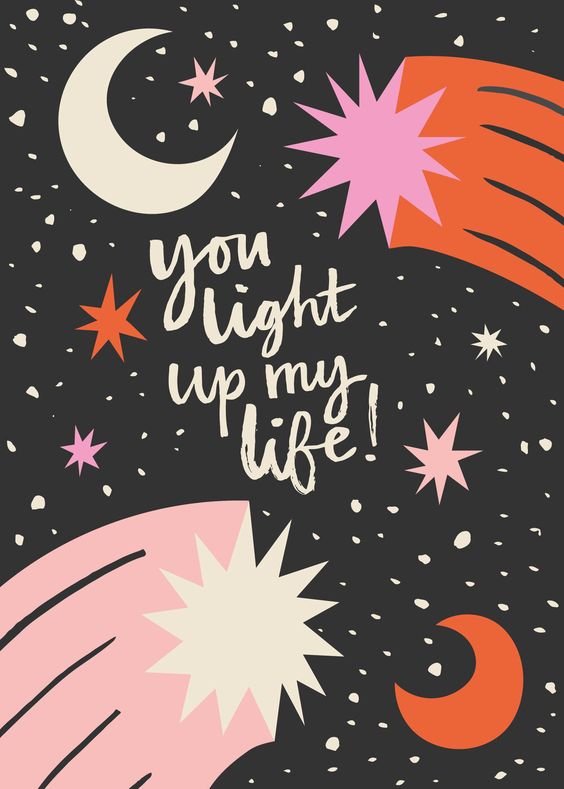 you
light
up my
life!